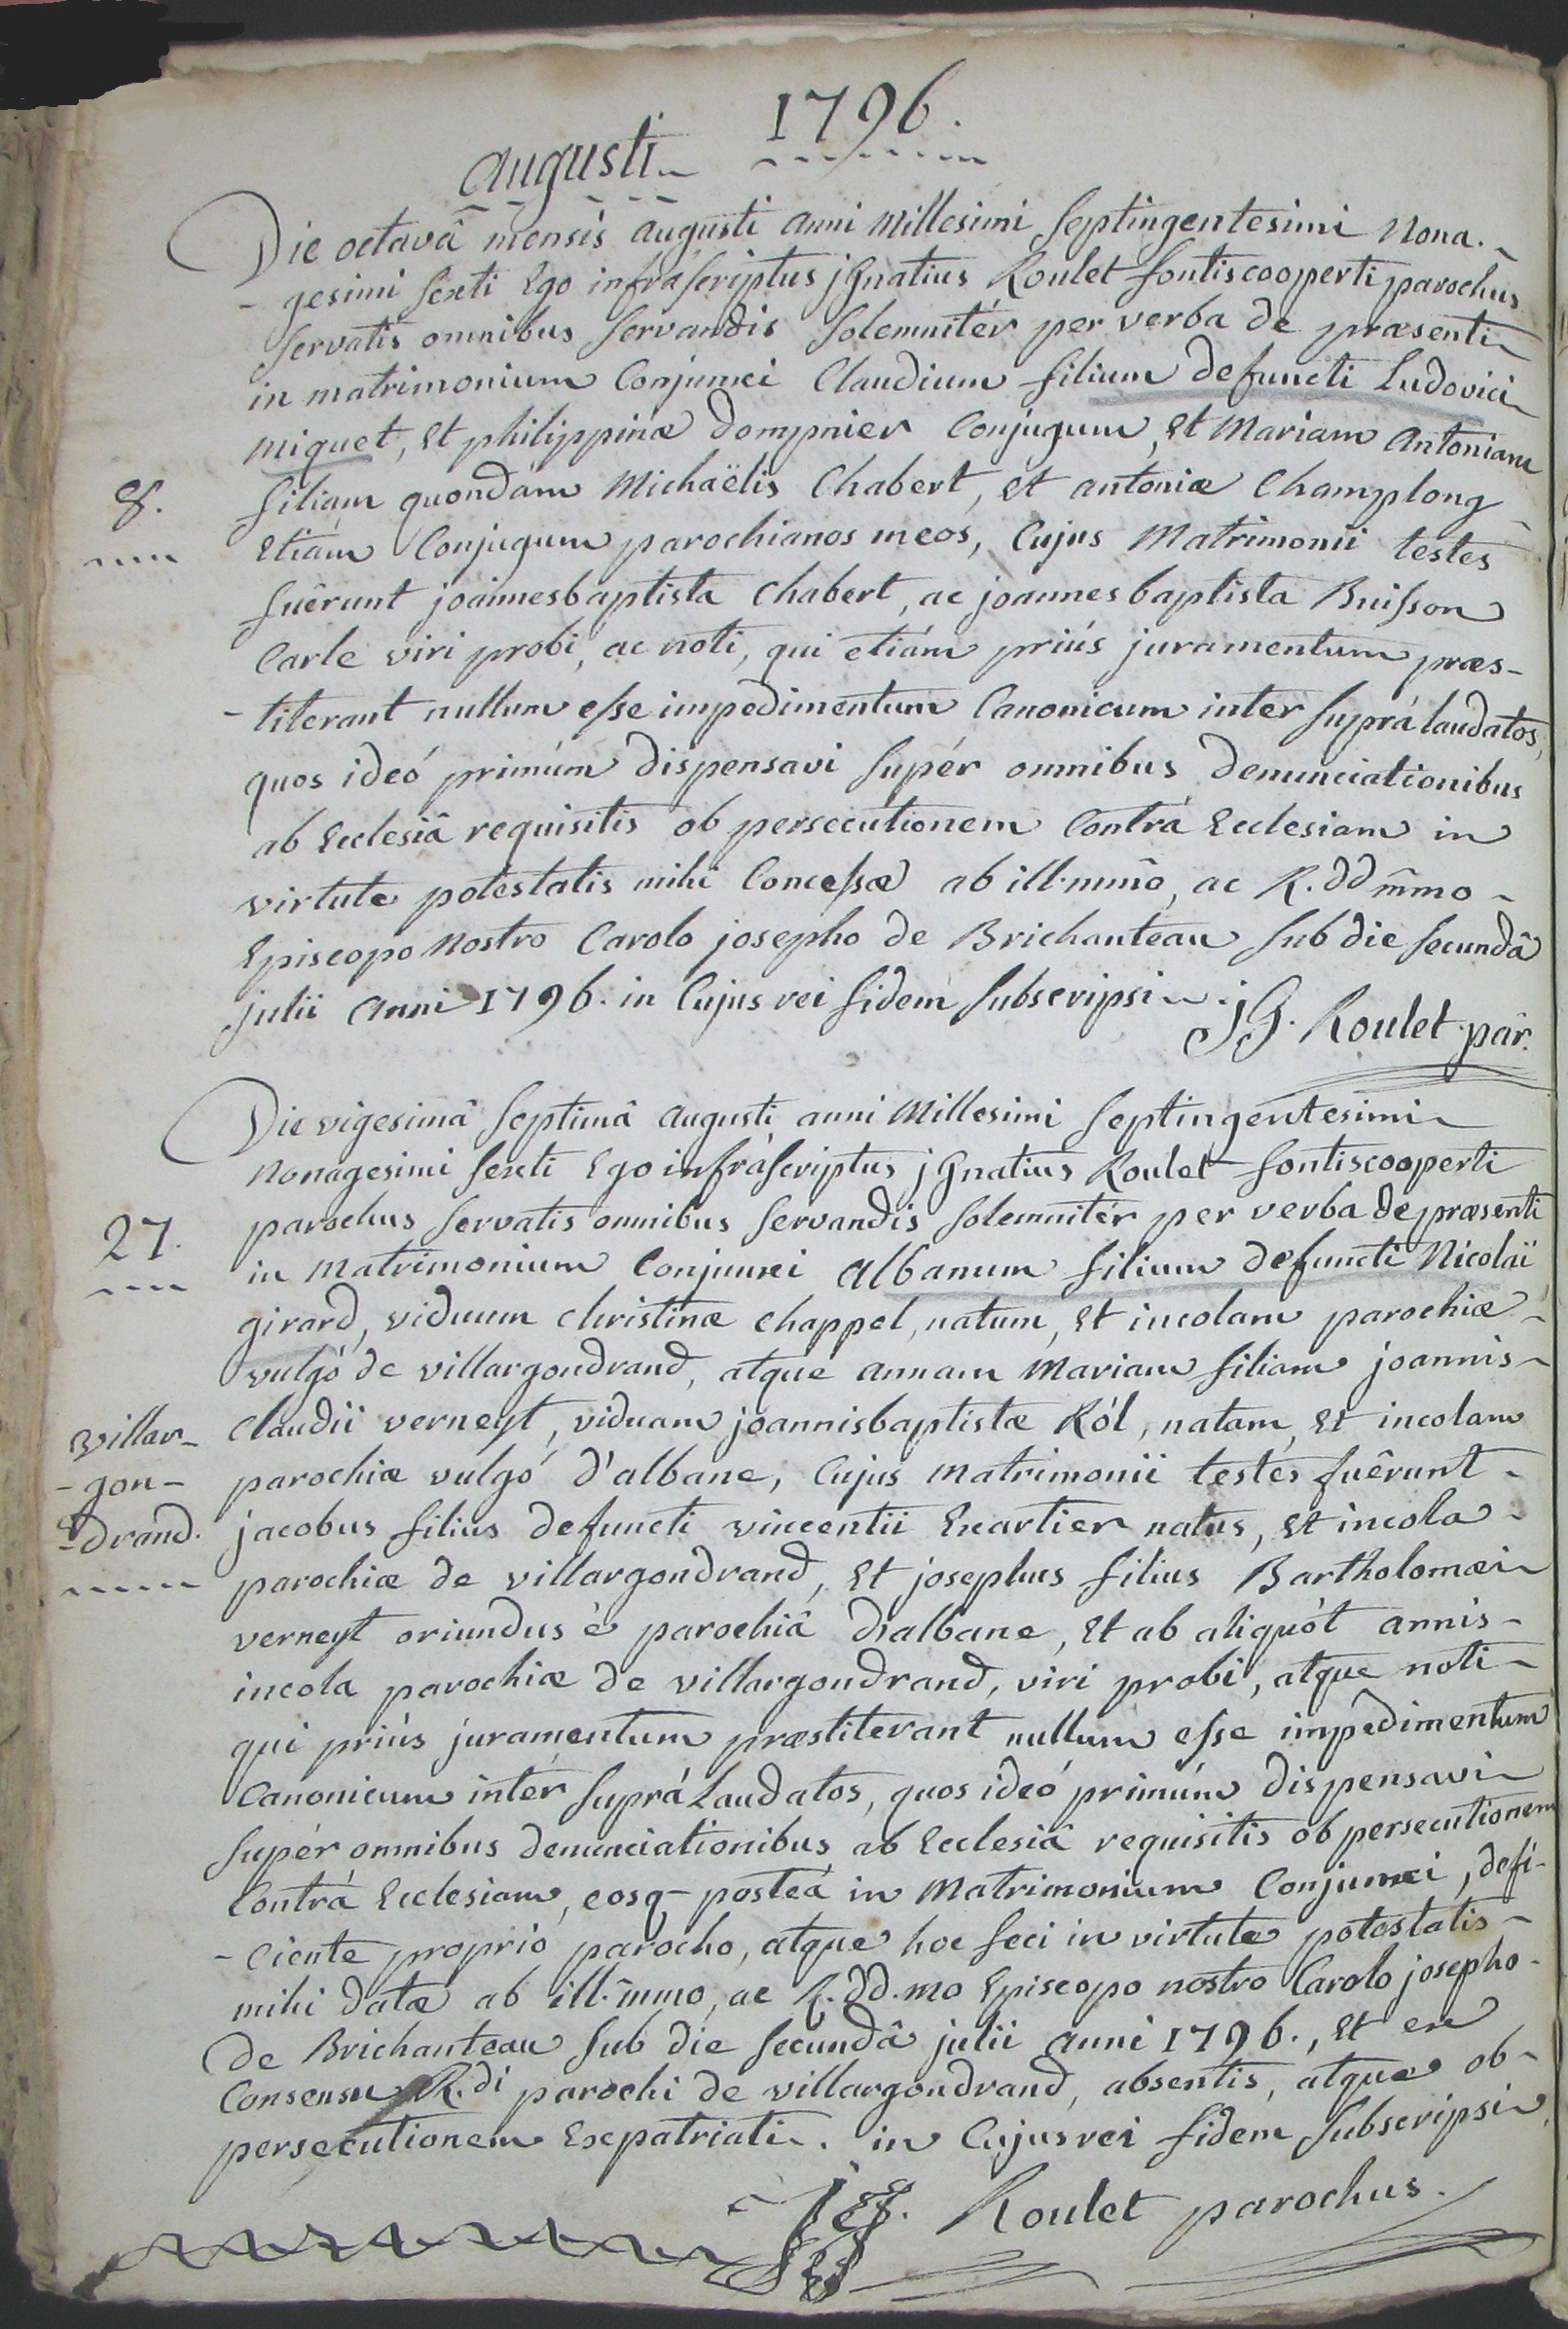 1796.
augusti
Die octavâ mensis augusti anni Millesimi Septingentesimi Nona.-
- gesimi Sexti Ego infráscriptus jGnatius Roulet fontiscooperti parochus
servatis omnibus servandis Solemnitér per verba de præsenti
in matrimonium Conjunxi Claudium filium defuncti Ludovici
miquet, Et philippinæ dompnier Conjugum, Et Mariam Antoniam
8.
filiam quondám Michaëlis Chabert, et antoniæ Champlong
Etiám Conjugum parochianos meos, Cujus Matrimonii testes
fuêrunt joannesbaptista Chabert, ac joannesbaptista Buisson
Carle viri probi, ac noti, qui etiám priús juramentum præs-
- titerant nullum esse impedimentum Canonicum inter suprálaudatos,
quos ideó primúm dispensavi supér omnibus denunciationibus
ab Ecclesiâ requisitis ob persecutionem Contrá Ecclesiam in
virtute potestatis mihi Concessæ ab ill.mmo, ac R. dd m̃mo -
Episcopo Nostro Carolo josepho de Brichanteau sub die secundâ
julii anni 1796. in Cujus rei fidem subscripsi.
jG. Roulet par.
Die vigesimâ septimâ augusti anni Millesimi Septingentesimi
Nonagesimi Sexti Ego infráscriptus jGnatius Roulet fontiscooperti
27.
parochus servatis omnibus servandis solemnitér per verba de præsenti
in Matrimonium Conjunxi albanum filium defuncti Nicolaï
girard, viduum christinæ chappel, natum, Et incolam parochiæ -
vulgó de villargondrand, atque annam Mariam filiam joannis-
villar-
- gon-
- drand.
Claudii verneyt, viduam joannisbaptistæ Ról, natam, Et incolam
parochiæ vulgó d'albane, Cujus Matrimonii testes fuêrunt -
jacobus filius defuncti vincentii Excartier natus, Et incola -
parochiæ de villargondrand, Et josephus filius Bartholomæi
verneyt oriundus è parochiâ d'albane, Et ab aliquót annis-
incola parochiæ de villargondrand, viri probi, atque noti-
qui priús juramentum præstiterant nullum esse impedimentum
Canonicum intér supráLaudatos, quos ideó primúm dispensavi
supér omnibus denunciationibus ab Ecclesiâ requisitis ob persecutionem
Contrá Ecclesiam, eosq- posteá in Matrimonium Conjunxi, defi-
- ciente proprio parocho, atque hoc feci in virtute potestatis-
mihi datæ ab ill. m̃mo, ac R. dd.mo Episcopo nostro Carolo josepho-
de Brichanteau sub die secundâ julii anni 1796., Et ex
Consensu R.di parochi de villargondrand, absentis, atque ob-
persecutionem Expatriati. in Cujus rei fidem subscripsi
jG. Roulet parochus.